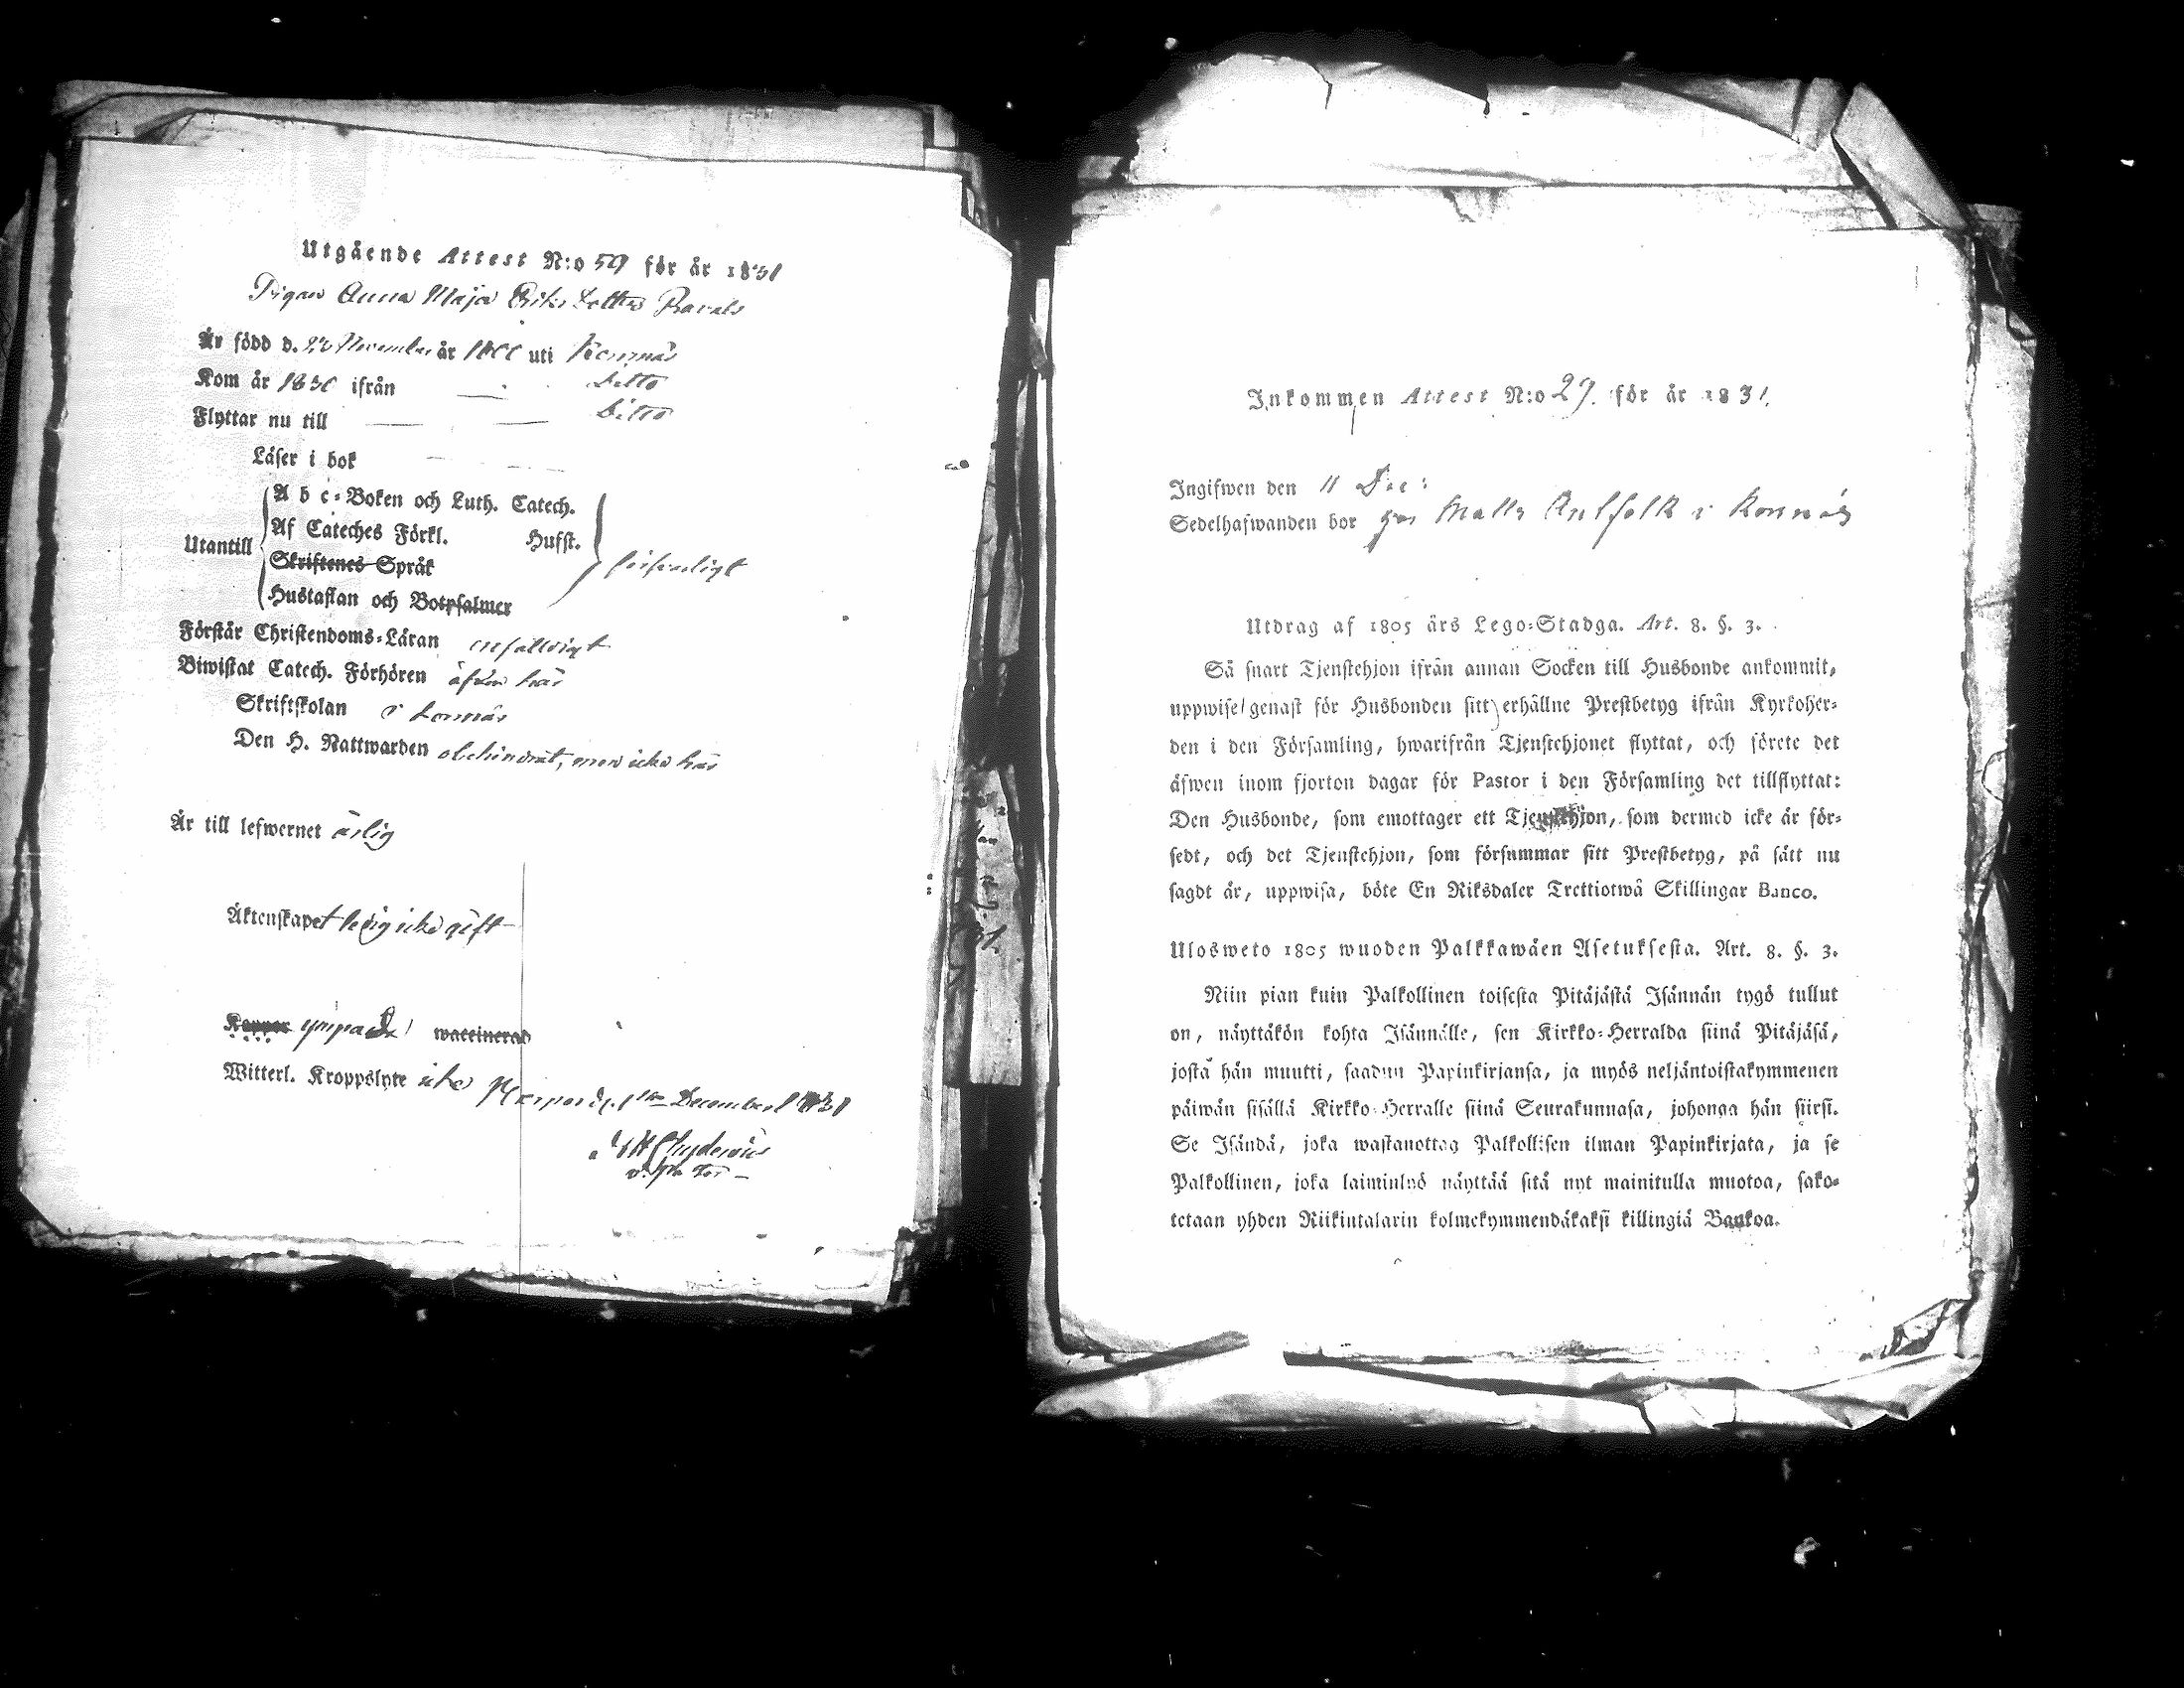 Utgående Attest N:o 59 för år 1831
Pigan Anna Maja Eriks Dotter
Är född d. November år 1800 uti Kornnäs
Kom år 1830 ifrån — ditto
Flyttar nu till — — ditto
Läser i bok — —
Utantill
A b c-Boken och Luth. Catech.
Af Cateches Förkl. Husft.
Skriftenes Språk
Hustaflan och Botpsalmer
Förstår Christendoms-Läran enfaldigt
Biwistat Catech. Förhören äfven här
Skriftskolan i Kornnäs
Den H. Nattwarden obehindrat, men icke här
Är till lefwernet ärlig
Äktenskapet ledig icke gift
Koppor ympad waccinerad
Witterl. Kroppslyte icke December 1831
Inkommen Attest N:o 29. för år 1831.
Ingifwen den 11 Dec:
Sedelhafwanden bor hos Matts i Kornnäs
Utdrag af 1805 års Lego-Stadga. Art. 8. §. 3.
Så snart Tjenstehjon ifrån annan Socken till Husbonde ankommit,
uppwise genast för Husbonden sitt erhållne Prestbetyg ifrån Kyrkoher-
den i den Församling, hwarifrån Tjenstehjonet flyttat, och förete det
äfwen inom fjorton dagar för Pastor i den Församling det tillflyttat:
Den Husbonde, som emottager ett Tjenstehjon, som dermed icke är för-
sedt, och det Tjenstehjon, som försummar sitt Prestbetyg, på sätt nu
sagdt är, uppwisa, böte En Riksdaler Trettiotwå Skillingar Banco.
Ulosweto 1805 wuoden Palkkawäen Asetuksesta. Art. 8. §. 3.
Niin pian kuin Palkollinen toisesta Pitäjästä Isännän tygö tullut
on, näyttäkön kohta Isännälle, sen Kirkko-Herralda siinä Pitäjäsä,
jostä hän muutti, saadun Papinkirjansa, ja myös neljäntoistakymmenen
päiwän sisällä Kirkko-Herralle siinä Seurakunnasa, johonga hän siirsi.
Se Isändä, joka wastanottaa Palkollisen ilman Papinkirjata, ja se
Palkollinen, joka laiminlyö näyttää sitä nyt mainitulla muotoa, sako-
tetaan yhden Riikintalarin kolmekymmendäkaksi killingiä Bankoa.